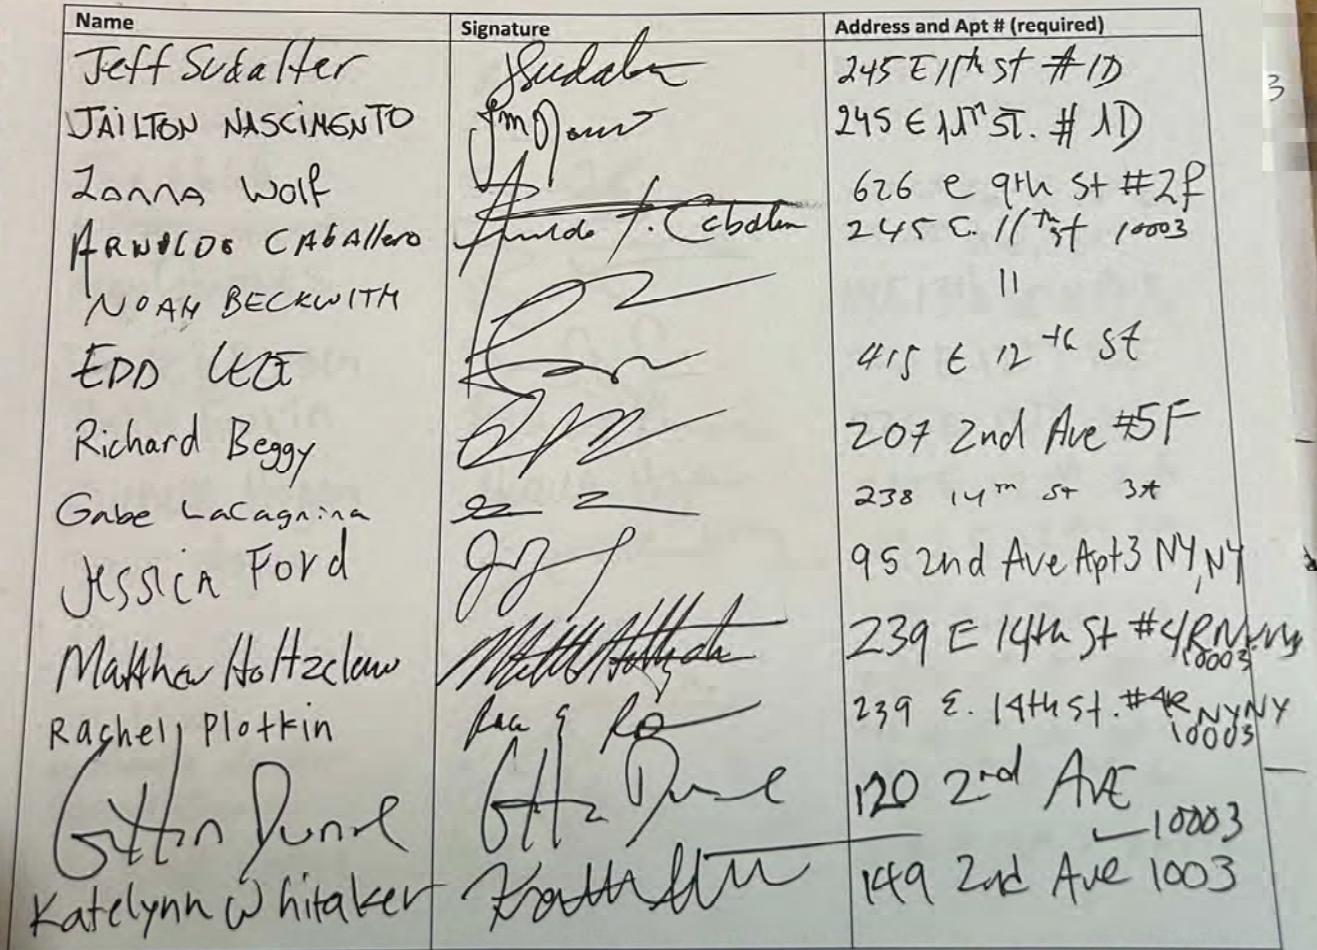 Name Signature Address and Apt # (required)
Jeff Sudalter JSudalter 245 E 11th St # 1D
JAILTON NASCIMENTO 245 E 11TH ST. # 1D
Zanna Wolf 626 e 9th St #2F
ARNOLDO CABAllero Arnoldo F. Caballero 245 E. 11th St 10003
NOAH BECKWITH 11
EDD 415 E 12th St
Richard Beggy 207 2nd Ave #5F
Gabe LaCagnina 238 14th St
Jessica Ford 95 2nd Ave Apt3 NY, NY
Matthew Holtzclaw 239 E 14th St #4R NY, NY
10003
Rachel Plotkin 239 E. 14th St. #4R NYNY
10003
Griffin Dunne Griffin Dunne 120 2nd AVE
10003
Katelynn Whitaker 149 2nd Ave 1003
3